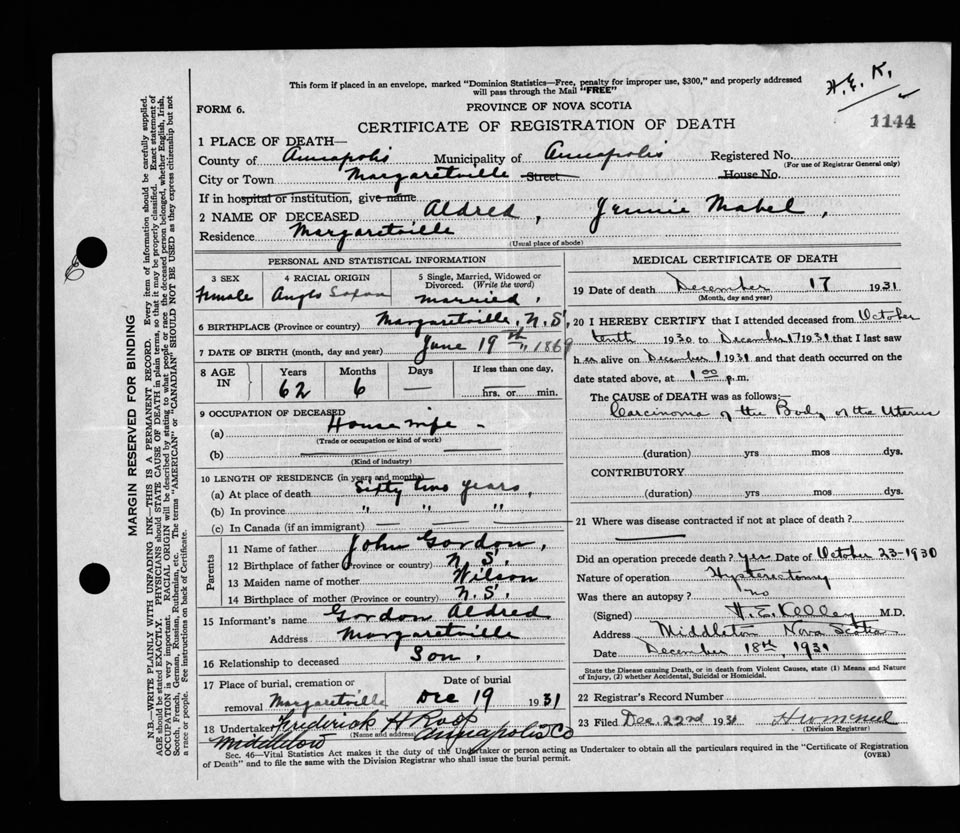 This form if placed in an envelope, marked "Dominion Statistics—Free, penalty for improper use, $300," and properly addressed
will pass through the Mail "FREE"
H.E.K.
FORM 6.
PROVINCE OF NOVA SCOTIA
CERTIFICATE OF REGISTRATION OF DEATH
1144
1 PLACE OF DEATH—
County of Annapolis Municipality of Annapolis Registered No.
(For use of Registrar General only)
City or Town Margaretville Street House No.
If in hospital or institution, give name
2 NAME OF DECEASED Aldred, Jennie Mabel,
Residence Margaretville
(Usual place of abode)
PERSONAL AND STATISTICAL INFORMATION
3 SEX 4 RACIAL ORIGIN 5 Single, Married, Widowed or
Divorced. (Write the word)
Female Anglo Saxon married.
6 BIRTHPLACE (Province or country) Margaretville, N.S.,
7 DATE OF BIRTH (month, day and year) June 19th, 1869
8 AGE IN Years Months Days If less than one day,
62 6 — hrs. or min.
9 OCCUPATION OF DECEASED
(a) Housewife -
(Trade or occupation or kind of work)
(b)
(Kind of industry)
10 LENGTH OF RESIDENCE (in years and months)
(a) At place of death Sixty two years,
(b) In province " " "
(c) In Canada (if an immigrant) — — —
Parents
11 Name of father John Gordon,
12 Birthplace of father (Province or country) N.S.
13 Maiden name of mother Wilson
14 Birthplace of mother (Province or country) N.S.
15 Informant's name Gordon Aldred
Address Margaretville
16 Relationship to deceased Son.
17 Place of burial, cremation or Date of burial
removal Margaretville Dec 19 1931
18 Undertaker Frederick H Roop
(Name and address)
Middleton Annapolis Co
MEDICAL CERTIFICATE OF DEATH
19 Date of death December 17 1931
(Month, day and year)
20 I HEREBY CERTIFY that I attended deceased from October
tenth 1930 to December 17 1931 that I last saw
her alive on December 1 1931 and that death occurred on the
date stated above, at 1 00 p.m.
The CAUSE of DEATH was as follows:—
Carcinoma of the Body of the Uterus
(duration) yrs mos dys.
CONTRIBUTORY
(duration) yrs mos dys.
21 Where was disease contracted if not at place of death?
Did an operation precede death? yes Date of October 23-1930
Nature of operation Hysterectomy
Was there an autopsy? no
(Signed) H.E. Kelley M.D.
Address Middleton Nova Scotia
Date December 18th 1931
State the Disease causing Death, or in death from Violent Causes, state (1) Means and Nature
of Injury, (2) whether Accidental, Suicidal or Homicidal.
22 Registrar's Record Number
23 Filed Dec. 22nd 1931
(Division Registrar)
Sec. 46—Vital Statistics Act makes it the duty of the Undertaker or person acting as Undertaker to obtain all the particulars required in the "Certificate of Registration
of Death" and to file the same with the Division Registrar who shall issue the burial permit. (OVER)
MARGIN RESERVED FOR BINDING
N.B.—WRITE PLAINLY WITH UNFADING INK—THIS IS A PERMANENT RECORD. Every item of information should be carefully supplied.
AGE should be stated EXACTLY. PHYSICIANS should STATE CAUSE OF DEATH in plain terms, so that it may be properly classified. Exact statement of
OCCUPATION is very important. RACIAL ORIGIN will be described by stating to what people or race the deceased person belonged, whether English, Irish,
Scotch, French, German, Russian, Ruthenian, etc. The terms "AMERICAN" or "CANADIAN" SHOULD NOT BE USED as they express citizenship but not
a race or people. See instructions on back of Certificate.